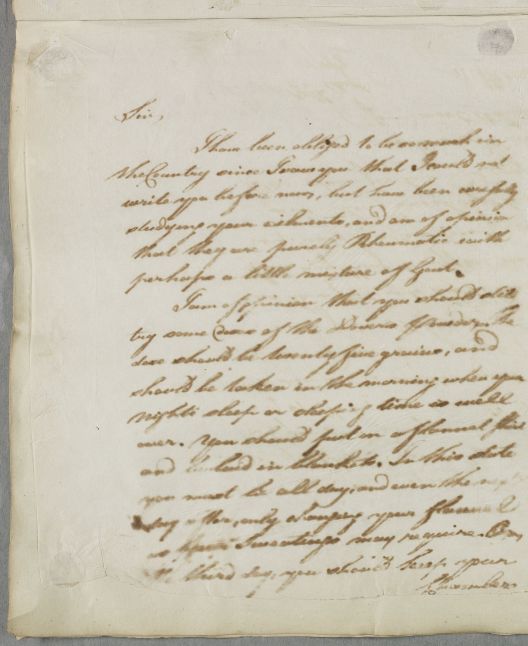 Sir,
I have been obliged to be so much in
the Country since I saw you that I could not
write you before now, but have been carefully
studying your ailments, and am of opinion
that they are purely Rheumatic with
perhaps a little mixture of Gout.
I am of opinion that you should
try some of the Dovers Powder, the
dose should be twenty five grains, and
should be taken in the morning when your
nights sleep or sleeping time is well
over. You should put on a flannel Shirt
and in blankets. In this state
you must be all day, and even the
day after, only changing your flannels
as your Sweatings may require. On
the third day, you should keep your
Chamber